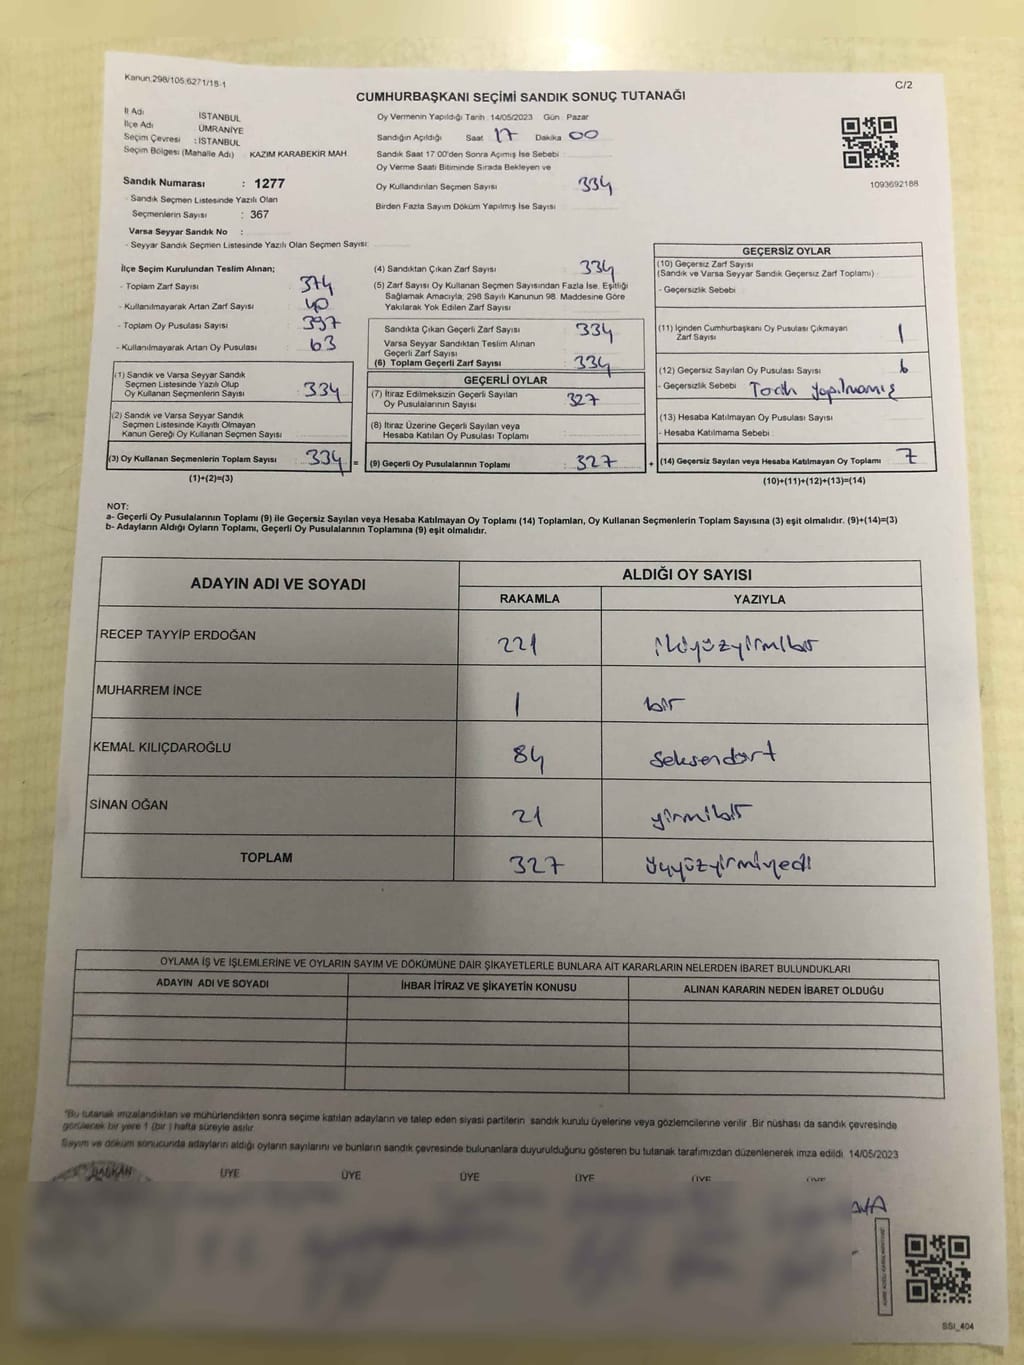 Kanun:298/105,6271/18-1
C/2
CUMHURBAŞKANI SEÇİMİ SANDIK SONUÇ TUTANAĞI
İl Adı : İSTANBUL
İlçe Adı : ÜMRANİYE
Seçim Çevresi : İSTANBUL
Seçim Bölgesi (Mahalle Adı) : KAZIM KARABEKİR MAH.
Sandık Numarası : 1277
- Sandık Seçmen Listesinde Yazılı Olan
Seçmenlerin Sayısı : 367
Varsa Seyyar Sandık No :
- Seyyar Sandık Seçmen Listesinde Yazılı Olan Seçmen Sayısı:
Oy Vermenin Yapıldığı Tarih : 14/05/2023 Gün : Pazar
Sandığın Açıldığı Saat 17 Dakika 00
Sandık Saat 17:00'den Sonra Açımış İse Sebebi
Oy Verme Saati Bitiminde Sırada Bekleyen ve
Oy Kullandırılan Seçmen Sayısı 334
Birden Fazla Sayım Döküm Yapılmış İse Sayısı
1093692188
İlçe Seçim Kurulundan Teslim Alınan;
- Toplam Zarf Sayısı : 374
- Kullanılmayarak Artan Zarf Sayısı : 40
- Toplam Oy Pusulası Sayısı : 397
- Kullanılmayarak Artan Oy Pusulası : 63
(1) Sandık ve Varsa Seyyar Sandık
Seçmen Listesinde Yazılı Olup
Oy Kullanan Seçmenlerin Sayısı : 334
(2) Sandık ve Varsa Seyyar Sandık
Seçmen Listesinde Kayıtlı Olmayan
Kanun Gereği Oy Kullanan Seçmen Sayısı
(3) Oy Kullanan Seçmenlerin Toplam Sayısı : 334
(1)+(2)=(3)
(4) Sandıktan Çıkan Zarf Sayısı 334
(5) Zarf Sayısı Oy Kullanan Seçmen Sayısından Fazla İse, Eşitliği
Sağlamak Amacıyla, 298 Sayılı Kanunun 98. Maddesine Göre
Yakılarak Yok Edilen Zarf Sayısı
Sandıkta Çıkan Geçerli Zarf Sayısı 334
Varsa Seyyar Sandıktan Teslim Alınan
Geçerli Zarf Sayısı
(6) Toplam Geçerli Zarf Sayısı 334
GEÇERLİ OYLAR
(7) İtiraz Edilmeksizin Geçerli Sayılan
Oy Pusulalarının Sayısı 327
(8) İtiraz Üzerine Geçerli Sayılan veya
Hesaba Katılan Oy Pusulası Toplamı
= (9) Geçerli Oy Pusulalarının Toplamı : 327
GEÇERSİZ OYLAR
(10) Geçersiz Zarf Sayısı
(Sandık ve Varsa Seyyar Sandık Geçersiz Zarf Toplamı)
- Geçersizlik Sebebi
(11) İçinden Cumhurbaşkanı Oy Pusulası Çıkmayan
Zarf Sayısı 1
(12) Geçersiz Sayılan Oy Pusulası Sayısı 6
- Geçersizlik Sebebi : Tercih Yapılmamış
(13) Hesaba Katılmayan Oy Pusulası Sayısı
- Hesaba Katılmama Sebebi
+ (14) Geçersiz Sayılan veya Hesaba Katılmayan Oy Toplamı 7
(10)+(11)+(12)+(13)=(14)
NOT:
a- Geçerli Oy Pusulalarının Toplamı (9) ile Geçersiz Sayılan veya Hesaba Katılmayan Oy Toplamı (14) Toplamları, Oy Kullanan Seçmenlerin Toplam Sayısına (3) eşit olmalıdır. (9)+(14)=(3)
b- Adayların Aldığı Oyların Toplamı, Geçerli Oy Pusulalarının Toplamına (9) eşit olmalıdır.
ADAYIN ADI VE SOYADI
ALDIĞI OY SAYISI
RAKAMLA YAZIYLA
RECEP TAYYİP ERDOĞAN 221 ikiyüzyirmibir
MUHARREM İNCE 1 bir
KEMAL KILIÇDAROĞLU 84 Seksendört
SİNAN OĞAN 21 yirmibir
TOPLAM 327 üçyüzyirmiyedi
OYLAMA İŞ VE İŞLEMLERİNE VE OYLARIN SAYIM VE DÖKÜMÜNE DAİR ŞİKAYETLERLE BUNLARA AİT KARARLARIN NELERDEN İBARET BULUNDUKLARI
ADAYIN ADI VE SOYADI İHBAR İTİRAZ VE ŞİKAYETİN KONUSU ALINAN KARARIN NEDEN İBARET OLDUĞU
*Bu tutanak imzalandıktan ve mühürlendikten sonra seçime katılan adayların ve talep eden siyasi partilerin sandık kurulu üyelerine veya gözlemcilerine verilir. Bir nüshası da sandık çevresinde
görülecek bir yere 1 (bir) hafta süreyle asılır.
Sayım ve döküm sonucunda adayların aldığı oyların sayılarını ve bunların sandık çevresinde bulunanlara duyurulduğunu gösteren bu tutanak tarafımızdan düzenlenerek imza edildi. 14/05/2023
BAŞKAN ÜYE ÜYE ÜYE ÜYE ÜYE ÜYE
SSI_404